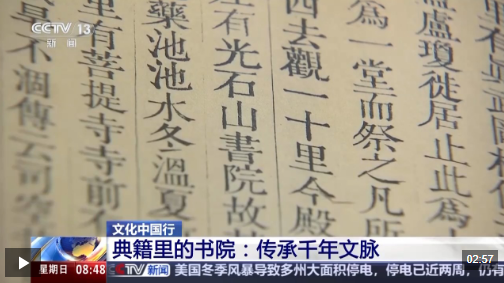 CCTV 13
新闻
盧瓊徙居止此爲
爲一堂而祭之凡所
四去觀一十里今殿
左有光石山書院故
藥池池水冬溫夏
里有菩提寺寺前
不涸傳云司空
文化中国行
典籍里的书院：传承千年文脉
02:57
星期日 08:48 CCTV 新闻 美国冬季风暴导致多州大面积停电，停电已近两周，仍有